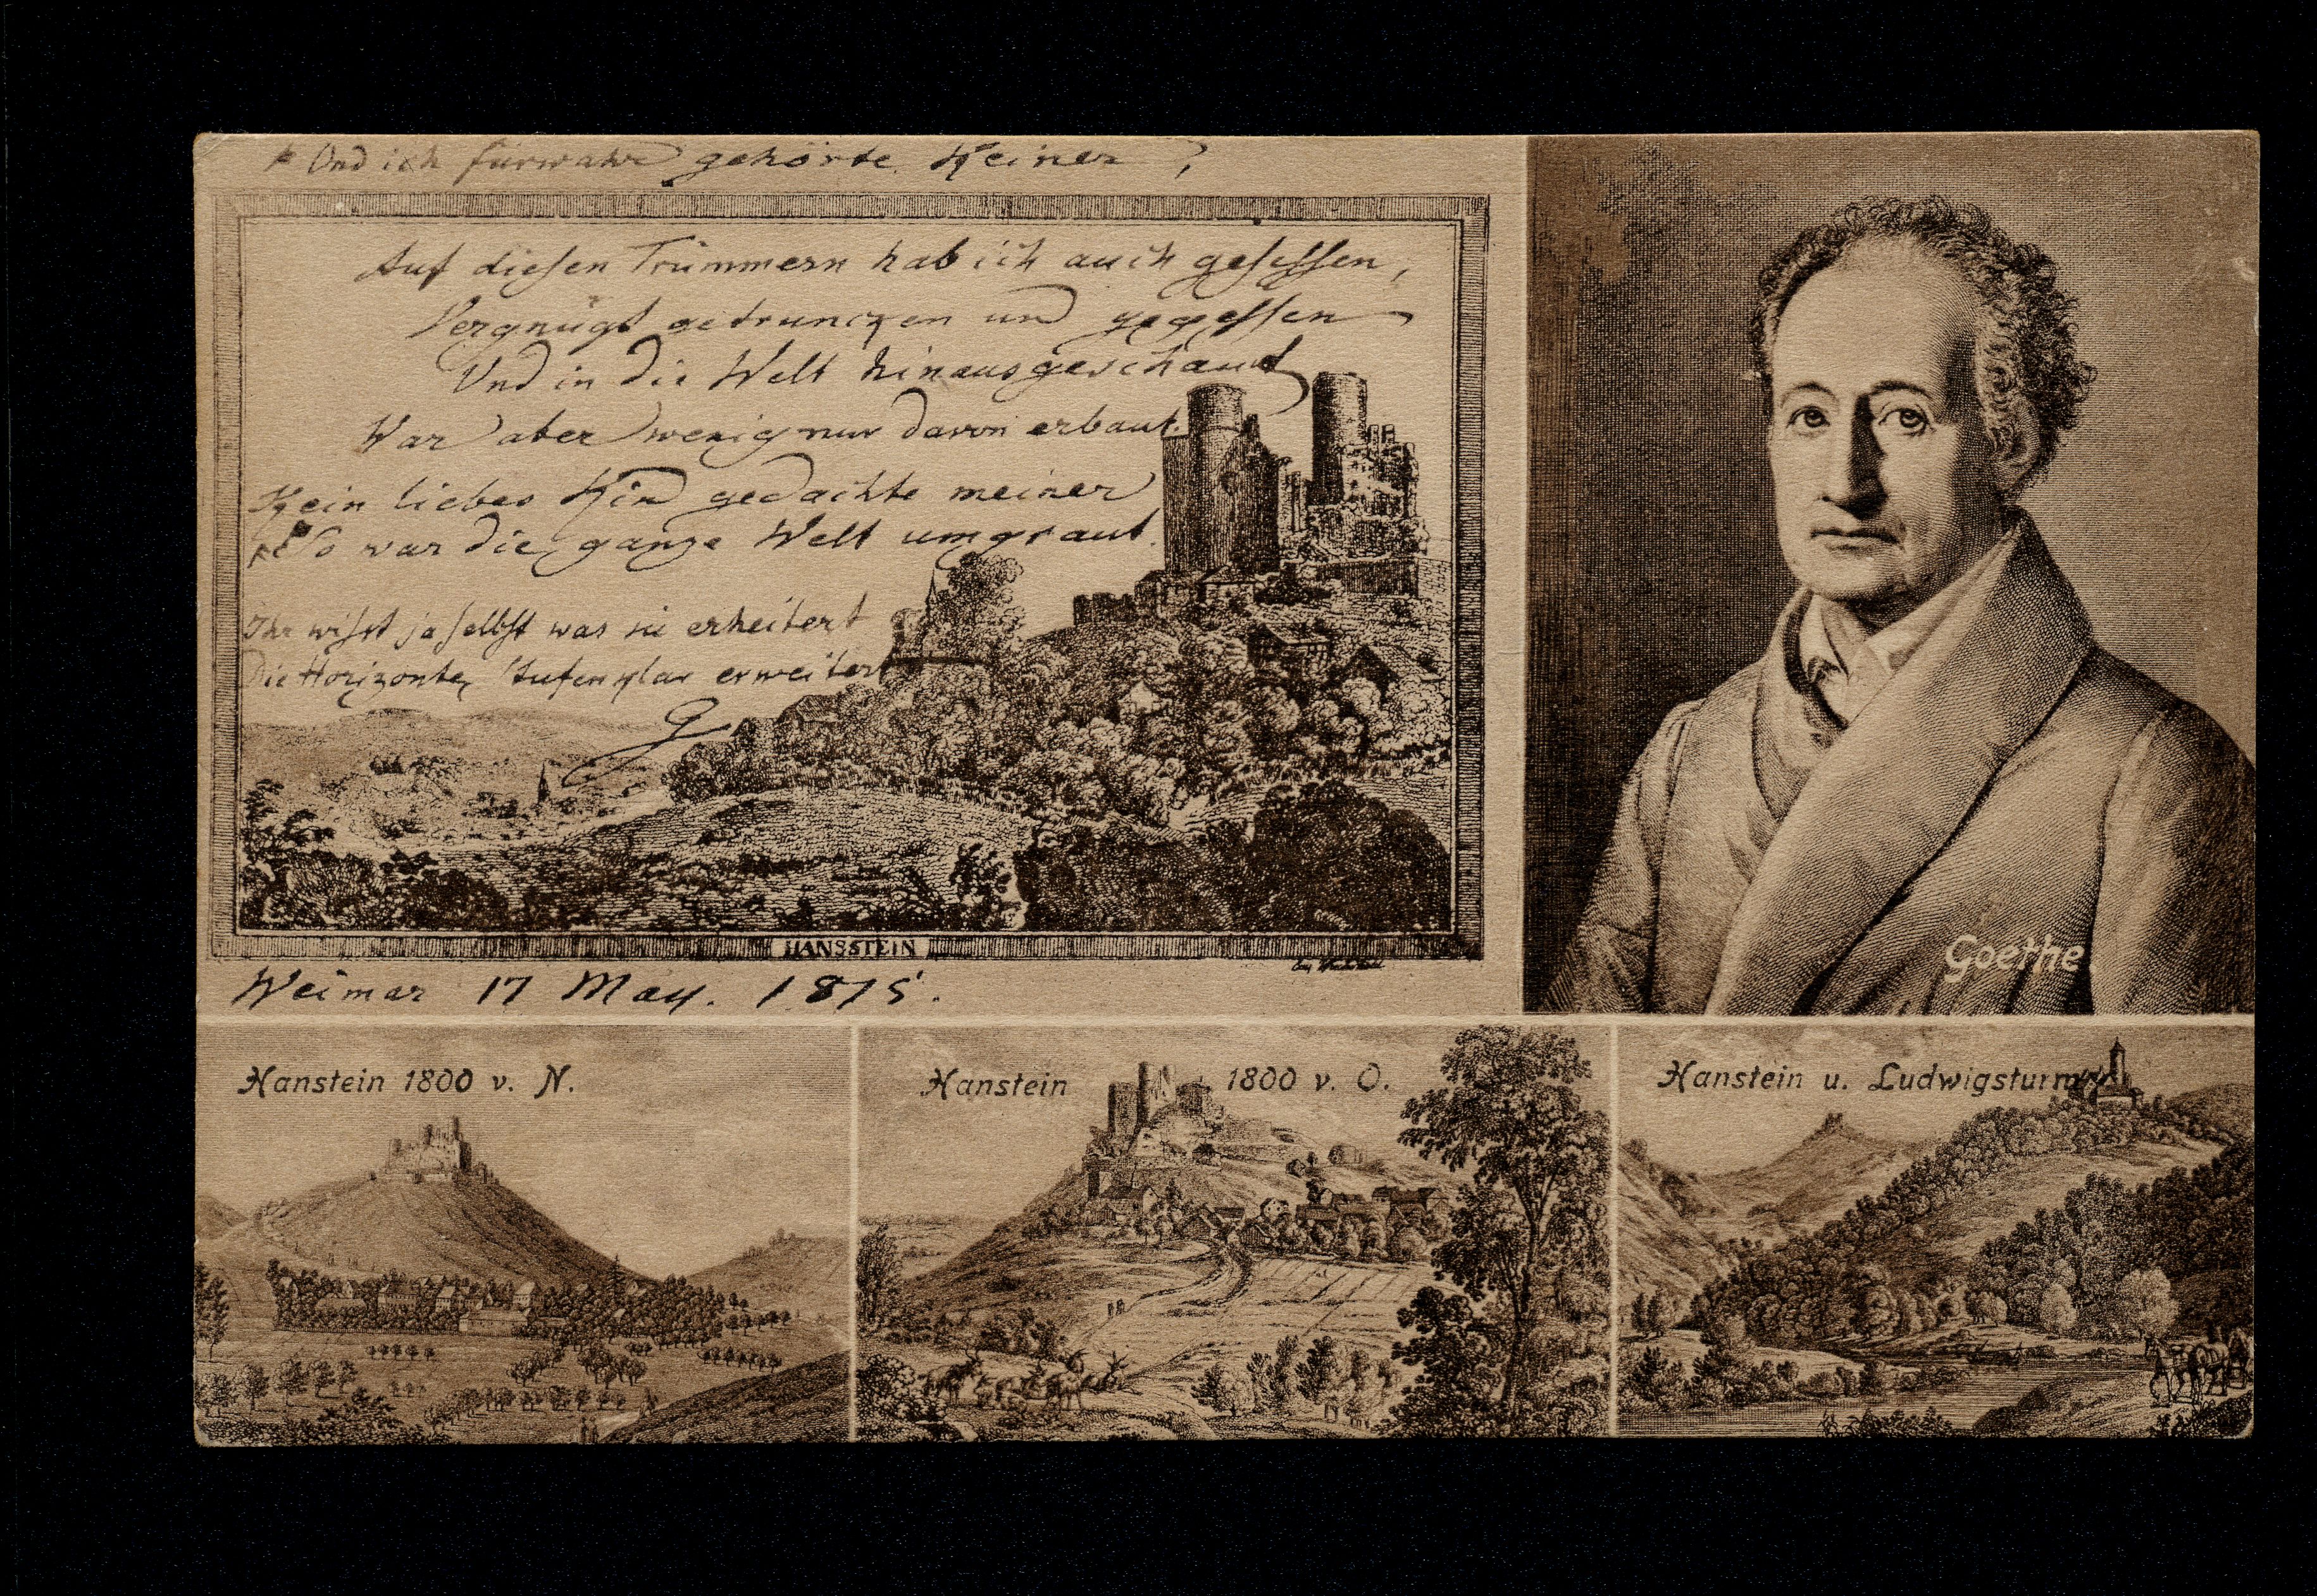 * Und ich fürwahr gehörte Keiner ;
Auf diesen Trümmern hab ich auch gesessen,
Vergnügt getruncken und gegessen
Und in die Welt hinausgeschaut
War aber wenig nur davon erbaut.
Kein liebes Kind gedachte meiner
* So war die ganze Welt umgraut.
Ihr wisst ja selbst was sie erheitert
Die Horizonte, stufenklar erweitert
G
HANSSTEIN
Weimar 17 May. 1815.
Goethe
Hanstein 1800 v. N.
Hanstein 1800 v. O.
Hanstein u. Ludwigsturm